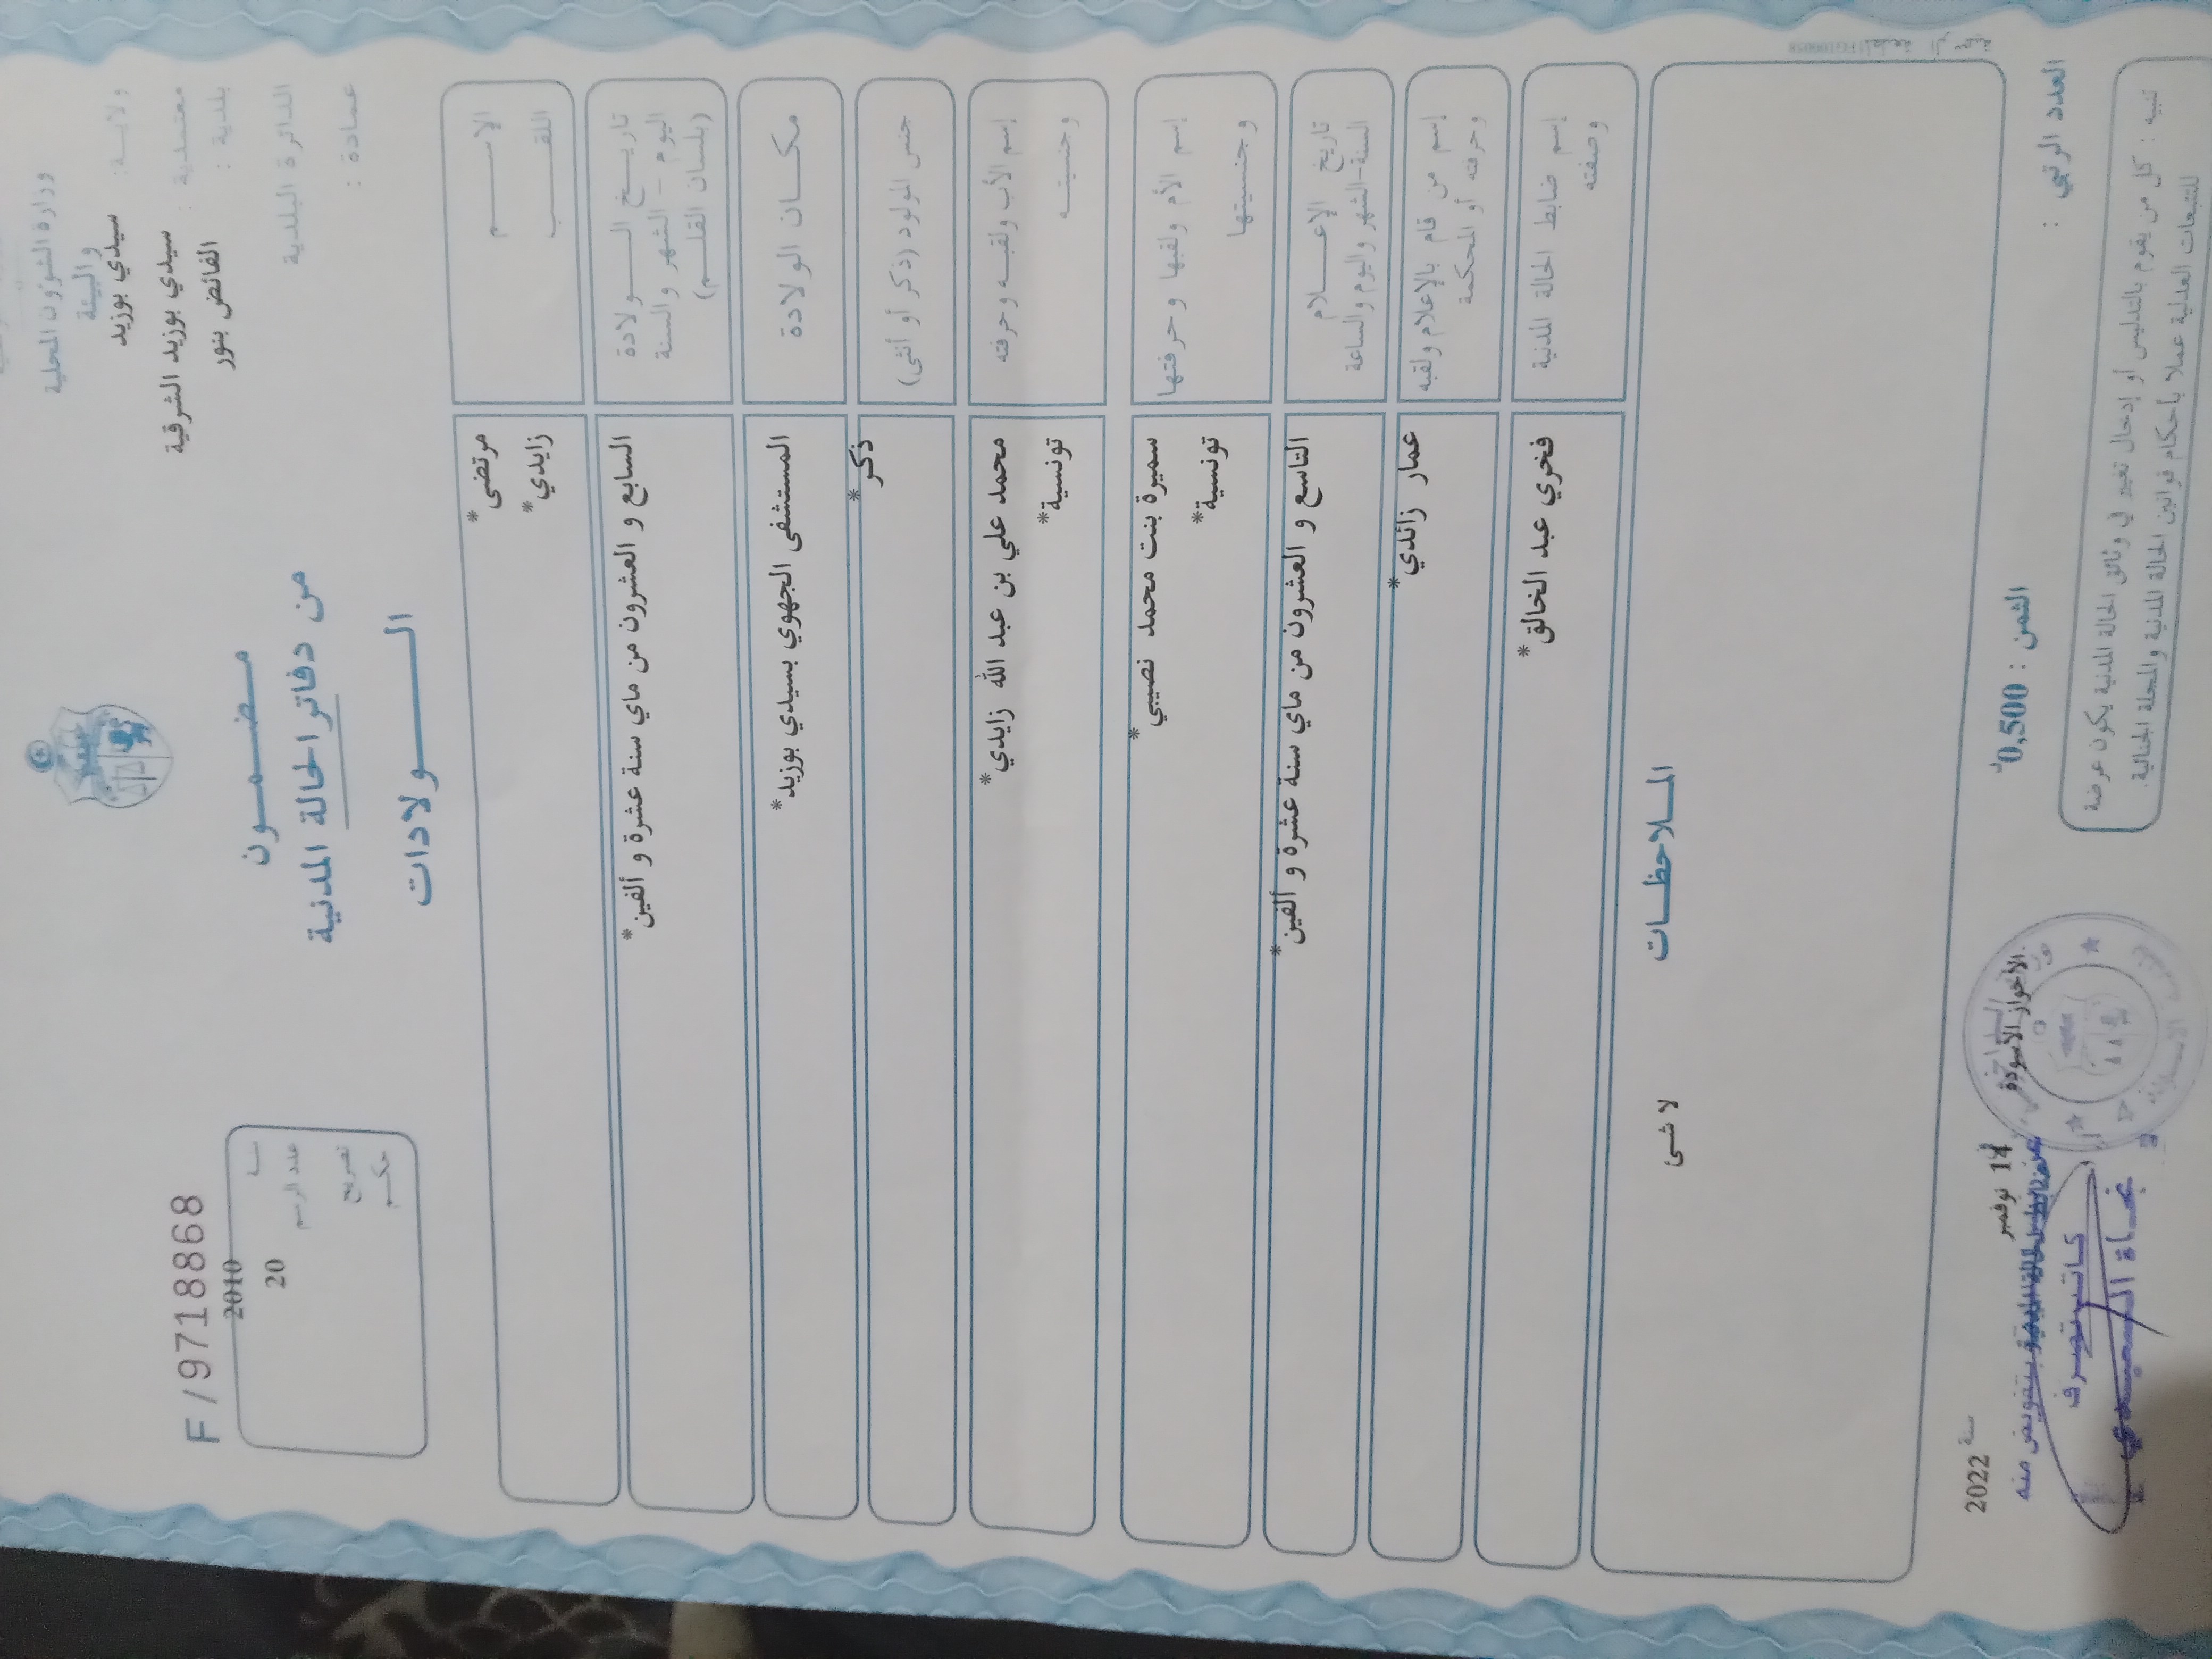 وزارة الشؤون المحلية
والبيئة
ولاية : سيدي بوزيد
معتمدية : سيدي بوزيد الشرقية
بلدية : الفائض بنور
الدائرة البلدية
عمادة :
مضمون
من دفاتر الحالة المدنية
الولادات
F/9718868
سنة 2010
عدد الرسم 20
تصريح
حكم
الإسم مرتضى*
اللقب زايدي*
تاريخ الولادة
اليوم - الشهر والسنة
(بلسان القلم)
السابع و العشرون من ماي سنة عشرة و ألفين*
مكان الولادة المستشفى الجهوي بسيدي بوزيد*
جنس المولود (ذكر أو أنثى) ذكر*
إسم الأب ولقبه وحرفته محمد علي بن عبد الله زايدي*
وجنسيته تونسية*
إسم الأم ولقبها وحرفتها سميرة بنت محمد نصيبي*
وجنسيتها تونسية*
تاريخ الإعلام
السنة-الشهر واليوم والساعة
التاسع و العشرون من ماي سنة عشرة و ألفين*
إسم من قام بالإعلام ولقبه عمار زائدي*
وحرفته أو المحكمة
إسم ضابط الحالة المدنية فخري عبد الخالق*
وصفته
الملاحظات
لا شئ
العدد الرتبي :
الثمن : 0,500د
الأحواز الأسودة
14 نوفمبر
سنة 2022
بتفويض منه
كاتب تصرف
تنبيه : كل من يقوم بالتدليس أو إدخال تغيير في وثائق الحالة المدنية يكون عرضة
للتتبعات العدلية عملا بأحكام قوانين الحالة المدنية والمجلة الجنائية.